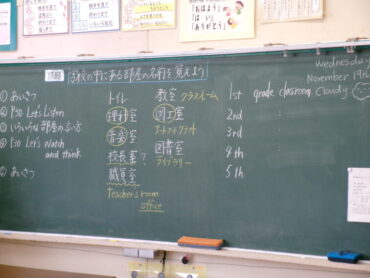 「おはよう」
「はい」
「ありがとう」
Wednesday
November 19th
Cloudy
課題 学校の中にある部屋の名前を覚えよう
① あいさつ
② P30 Let's Listen
③ いろいろな部屋の言い方
④ P30 Let's Watch
and think
⑤ あいさつ
トイレ
理科室
音楽室
校長室?
職員室
teacher's room
office
教室 クラスルーム
図工室
アートアンドクラフト
図書室
ライブラリー
1st grade classroom
2nd
3rd
4th
5th